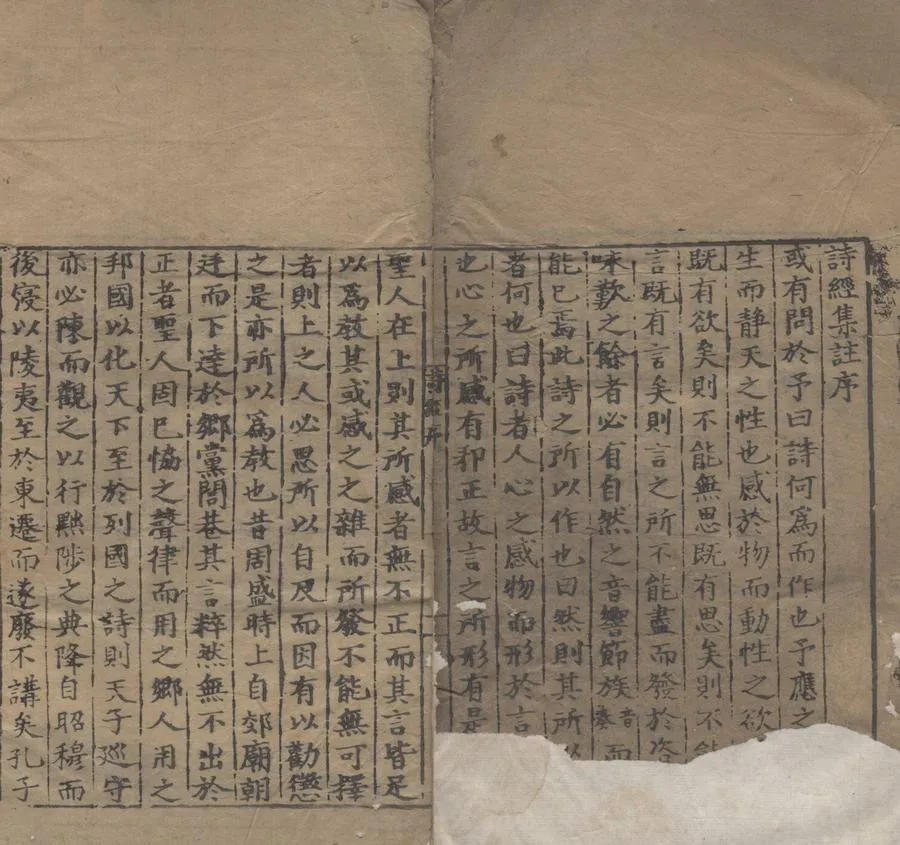 詩經集註序
或有問於予曰詩何爲而作也予應之
生而静天之性也感於物而動性之欲
既有欲矣則不能無思既有思矣則不能
言既有言矣則言之所不能盡而發於咨
咏歎之餘者必有自然之音響節族音奏而
能已焉此詩之所以作也曰然則其所以
者何也曰詩者人心之感物而形於言
也心之所感有邪正故言之所形有是
詩經序
聖人在上則其所感者無不正而其言皆足
以爲教其或感之之雜而所發不能無可擇
者則上之人必思所以自反而因有以勸懲
之是亦所以爲教也昔周盛時上自郊廟朝
廷而下達於鄉黨閭巷其言粹然無不出於
正者聖人固已恊之聲律而用之鄉人用之
邦國以化天下至於列國之詩則天子廵守
亦必陳而觀之以行黜陟之典降自昭穆而
後寖以陵夷至於東遷而遂廢不講矣孔子